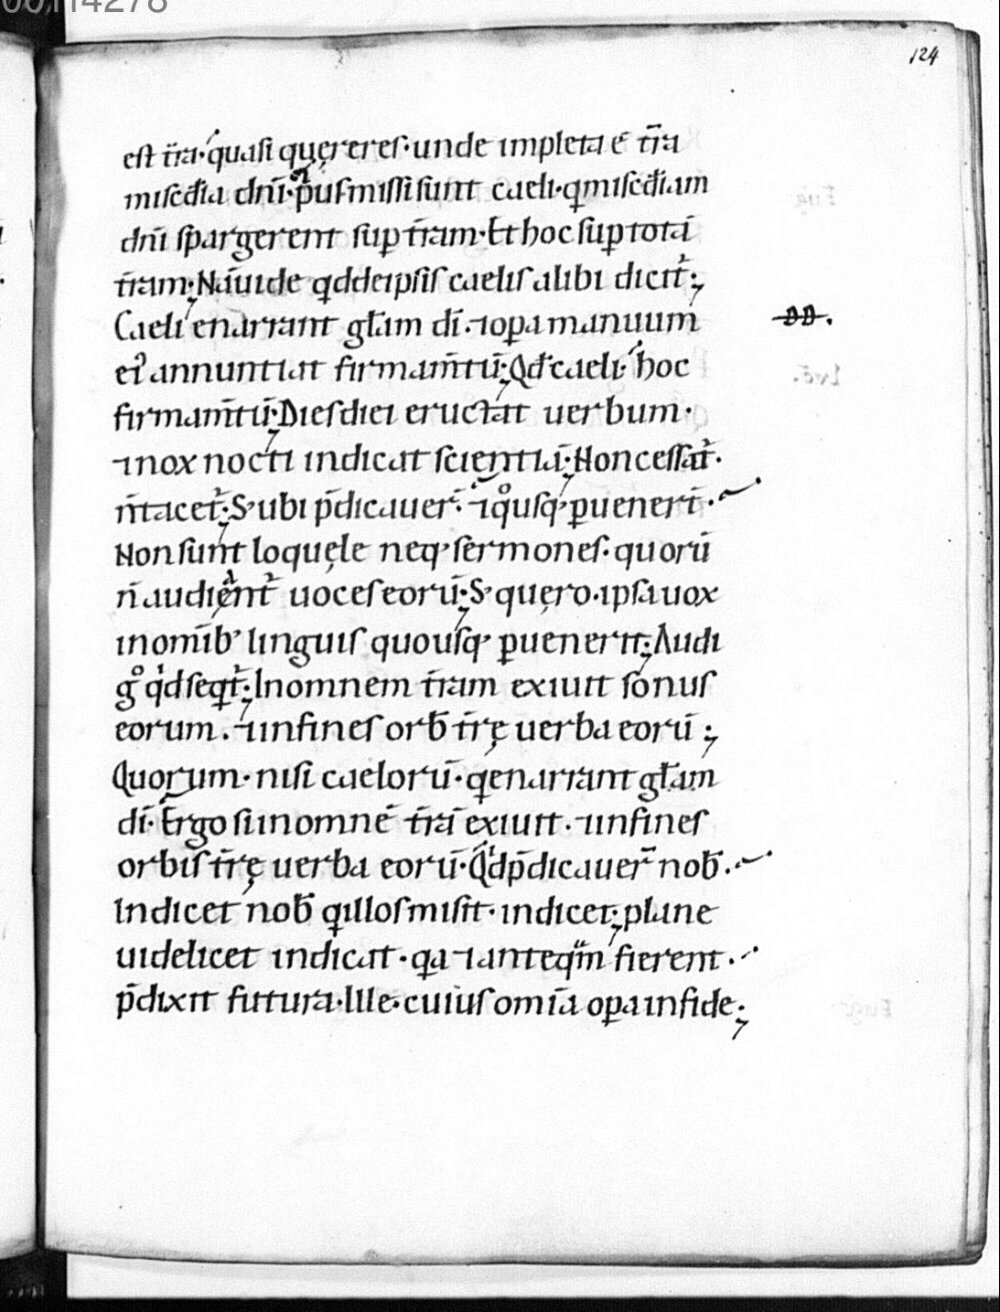 00114278
124
est t̄ra· quasi quęreres· unde impleta ē t̄ra
misc̄dia dn̄i· p̄us missi sunt caeli· q misc̄diam
dn̄i spargerent sup t̄ram· Et hoc sup totā
t̄ram; Nā uide qd de ipsis caelis alibi dicit᷑;
Caeli enarrant gl̄am dī· ⁊ opa manuum
ei᷒ annuntiat firmam̄tū; Qd̄ caeli· hoc
firmam̄tū; Dies diei eructat uerbum·
⁊ nox nocti indicat scientiā; Non cessat᷑·
n̄ tacet᷑; S; ubi p̄dicauer̄· ⁊ q°usq; puener̄t·
Non sunt loquęle neq; sermones· quorū
n̄ audient᷑ uoces eorū; S; quęro· ipsa uox
in om̄ib; linguis quousq; puenerit; Audi
g° qd seqt᷑; In omnem t̄ram exiuit sonus
eorum· ⁊ in fines orb̄ t̄rę uerba eorū;
Quorum· nisi caelorū· q enarrant gl̄am
dī· Ergo si in omnē t̄rā exiuit· ⁊ in fines
orbis t̄rę uerba eorū· Qd p̄dicauer̄ nob̄·
Indicet nob̄ q illos misit· indicet; plane
uidelicet indicat· qa ⁊ anteqm̄ fierent·
p̄dixit futura· Ille· cuius om̄ia opa in fide;